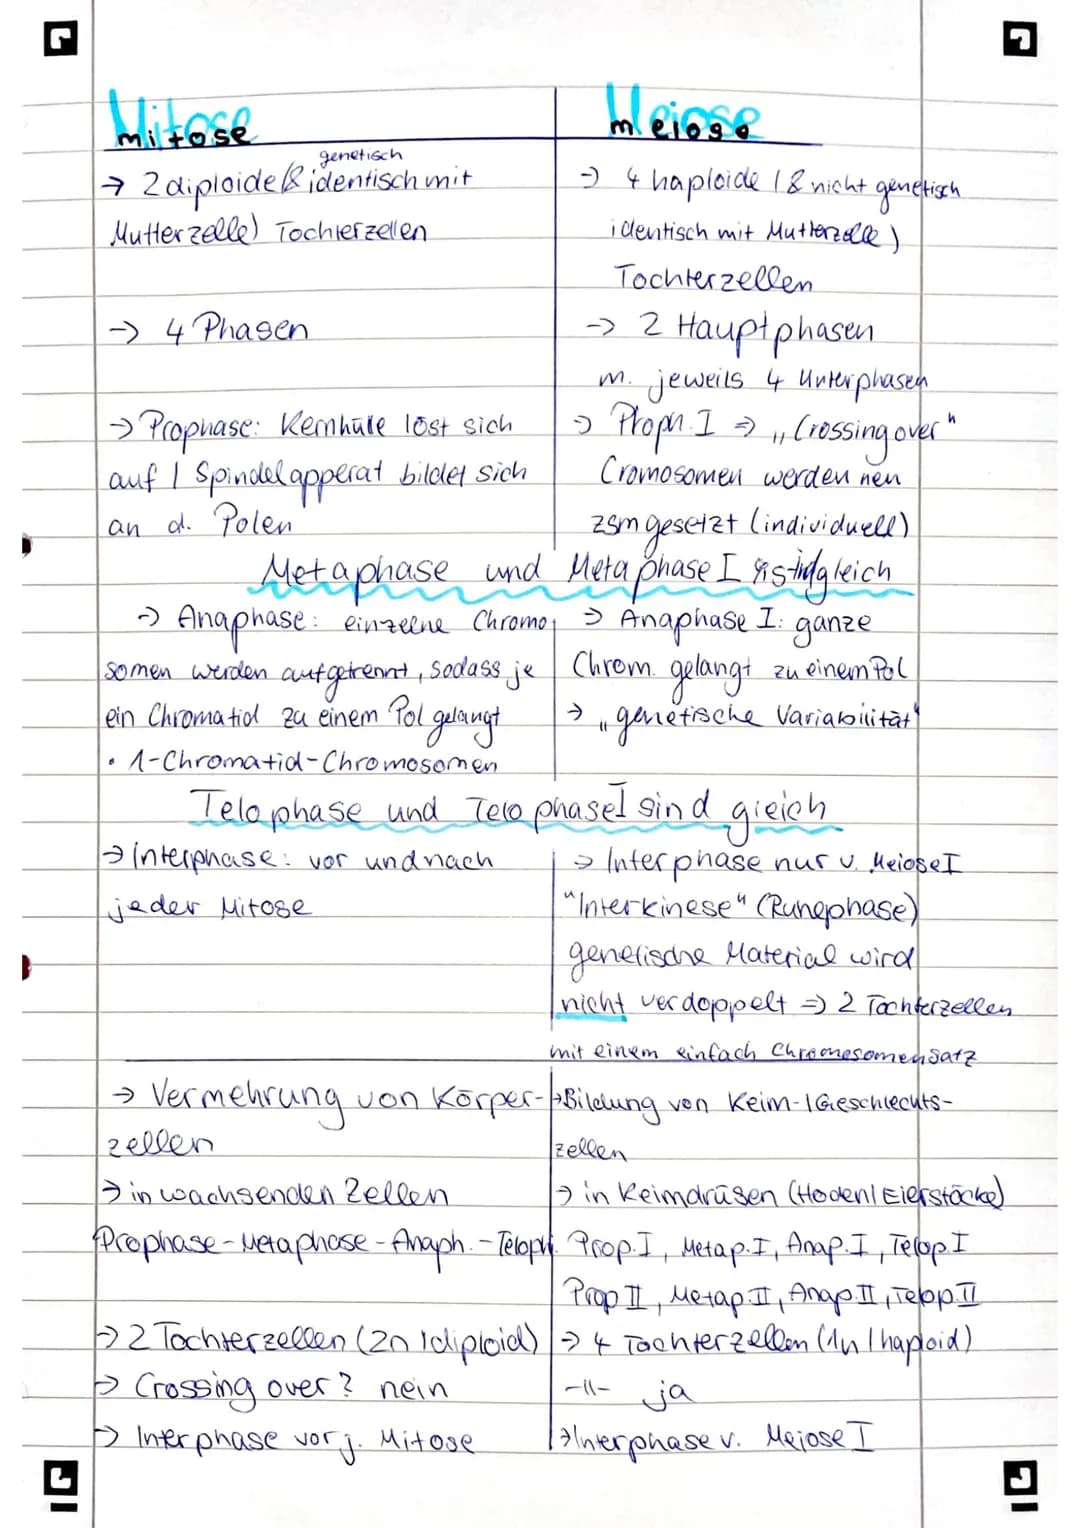 Mitose
mitose
Meiose
meiose
genetisch
→ 2 diploide (& identisch mit
Mutterzelle) Tochterzellen
→ 4 haploide (& nicht genetisch
identisch mit Mutterzelle)
Tochterzellen
→ 4 Phasen
→ 2 Hauptphasen
m. jeweils 4 Unterphasen
→ Prophase: Kernhülle löst sich
auf / Spindelapperat bildet sich
an d. Polen
→ Proph. I ⇒ „Crossing over"
Cromosomen werden neu
zsmgesetzt (individuell)
Metaphase und Metaphase I gleich
→ Anaphase: einzelne Chromo
somen werden aufgetrennt, sodass je
ein Chromatid zu einem Pol gelangt
• 1-Chromatid-Chromosomen
→ Anaphase I: ganze
Chrom. gelangt zu einem Pol
→ „genetische Variabilität"
Telophase und Telophase I sind gleich
→ Interphase: vor und nach
jeder Mitose
→ Interphase nur v. Meiose I
"Interkinese" (Ruhephase)
genetische Material wird
nicht verdoppelt ⇒ 2 Tochterzellen
mit einem einfach Chromosomensatz
→ Vermehrung von Körper-
zellen
→ Bildung von Keim-/Geschlechts-
zellen
→ in wachsenden Zellen
→ in Keimdrüsen (Hoden/Eierstöcke)
Prophase - Metaphase - Anaph. - Teloph.
Prop. I, Metap. I, Anap. I, Telop. I
Prop II, Metap. II, Anap. II, Telop. II
→ 2 Tochterzellen (2n / diploid)
→ 4 Tochterzellen (1n / haploid)
→ Crossing over? nein
-||- ja
→ Interphase vor j. Mitose
→ Interphase v. Meiose I